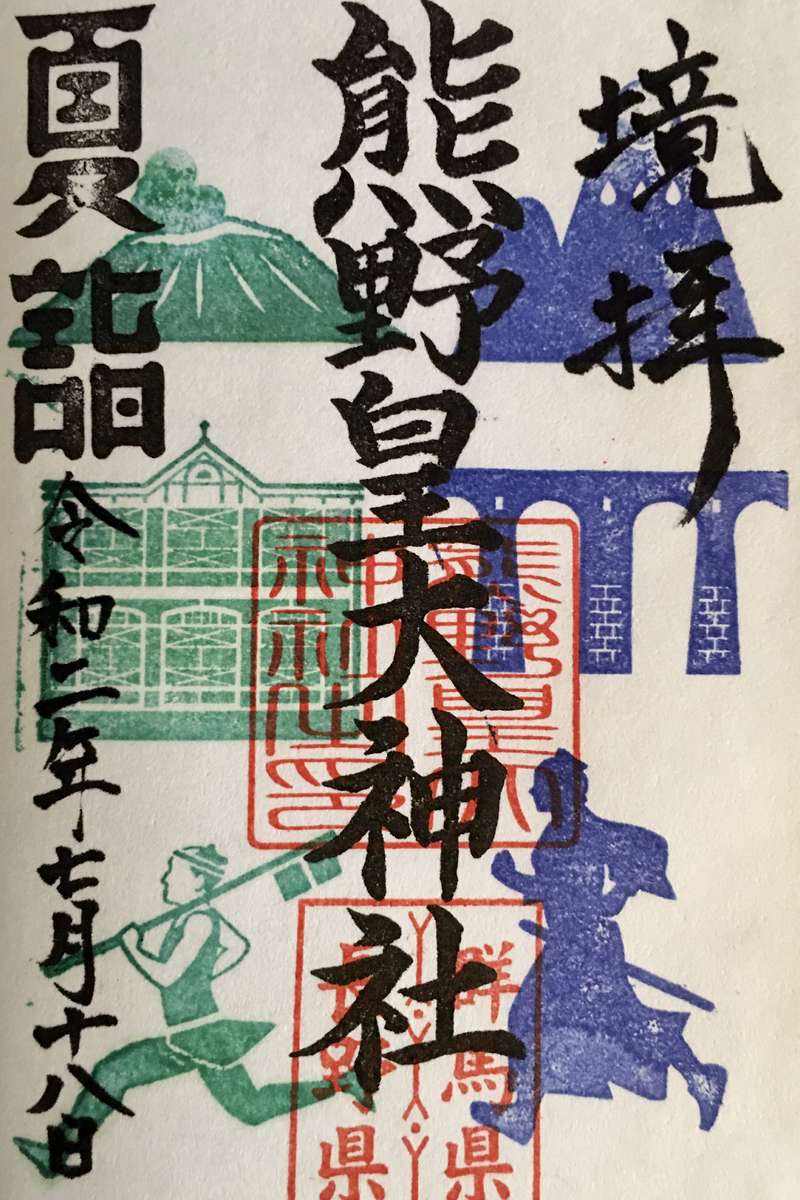 境拝
熊野皇大神社
夏詣
令和二年七月十八日
群馬県
長野県